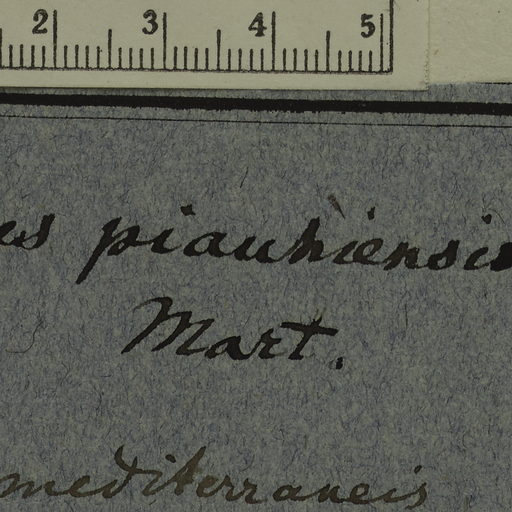 2 3 4 5
us piauhiensis
Mart.
mediterraneis